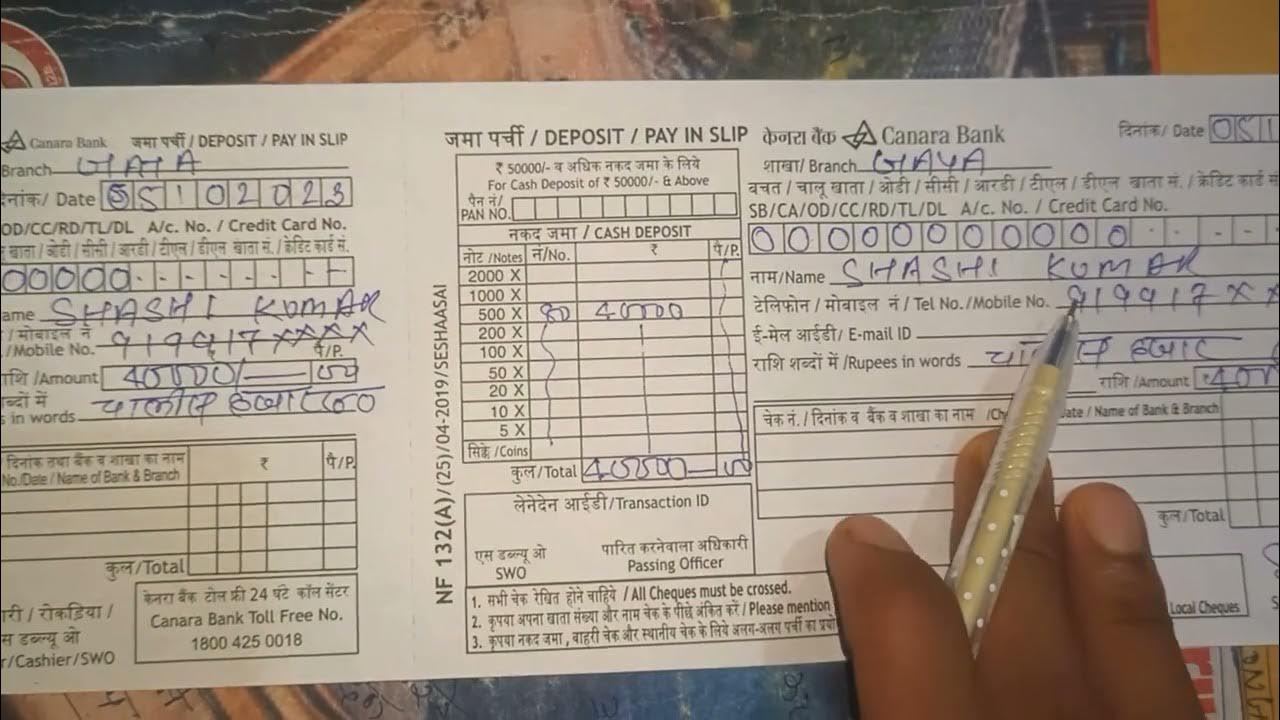 Canara Bank जमा पर्ची / DEPOSIT / PAY IN SLIP
Branch GAYA
नांक/ Date 05102023
OD/CC/RD/TL/DL A/c. No. / Credit Card No.
खाता / ओडी / सीसी / आरडी / टीएल / डीएल खाता सं. / क्रेडिट कार्ड सं.
00000
ame SHASHI KUMAR
/ मोबाइल नं
/Mobile No. 919917××××
पै/P.
राशि /Amount 40000/— 00
ब्दों में
s in words चालीस हजार
दिनांक तथा बैंक व शाखा का नाम ₹ पै/P.
No./Date / Name of Bank & Branch
कुल/Total
केनरा बैंक टोल फ्री 24 घंटे कॉल सेंटर
Canara Bank Toll Free No.
1800 425 0018
री / रोकड़िया /
स डब्ल्यू ओ
r/Cashier/SWO
NF 132(A)/(25)/04-2019/SESHAASAI
जमा पर्ची / DEPOSIT / PAY IN SLIP
₹ 50000/- व अधिक नकद जमा के लिये
For Cash Deposit of ₹ 50000/- & Above
पैन नं/
PAN NO.
नकद जमा / CASH DEPOSIT
नोट /Notes नं/No. ₹ पै/P.
2000 X
1000 X
500 X 80 40000
200 X
100 X
50 X
20 X
10 X
5 X
सिक्के /Coins
कुल/Total 40000— 00
लेनेदेन आईडी/Transaction ID
एस डब्ल्यू ओ पारित करनेवाला अधिकारी
SWO Passing Officer
1. सभी चेक रेखित होने चाहिये / All Cheques must be crossed.
2. कृपया अपना खाता संख्या और नाम चेक के पीछे अंकित करें / Please mention
3. कृपया नकद जमा, बाहरी चेक और स्थानीय चेक के लिये अलग-अलग पर्ची का प्रयो
केनरा बैंक Canara Bank
दिनांक/ Date 051
शाखा/ Branch GAYA
बचत / चालू खाता / ओडी / सीसी / आरडी / टीएल / डीएल खाता सं. / क्रेडिट कार्ड सं
SB/CA/OD/CC/RD/TL/DL A/c. No. / Credit Card No.
00000000000
नाम/Name SHASHI KUMAR
टेलिफोन / मोबाइल नं / Tel No./Mobile No. 919917××
ई-मेल आईडी/ E-mail ID
राशि शब्दों में /Rupees in words हजार
राशि /Amount 400
चेक नं. / दिनांक व बैंक व शाखा का नाम /Ch Date / Name of Bank & Branch
कुल/Total
Local Cheques